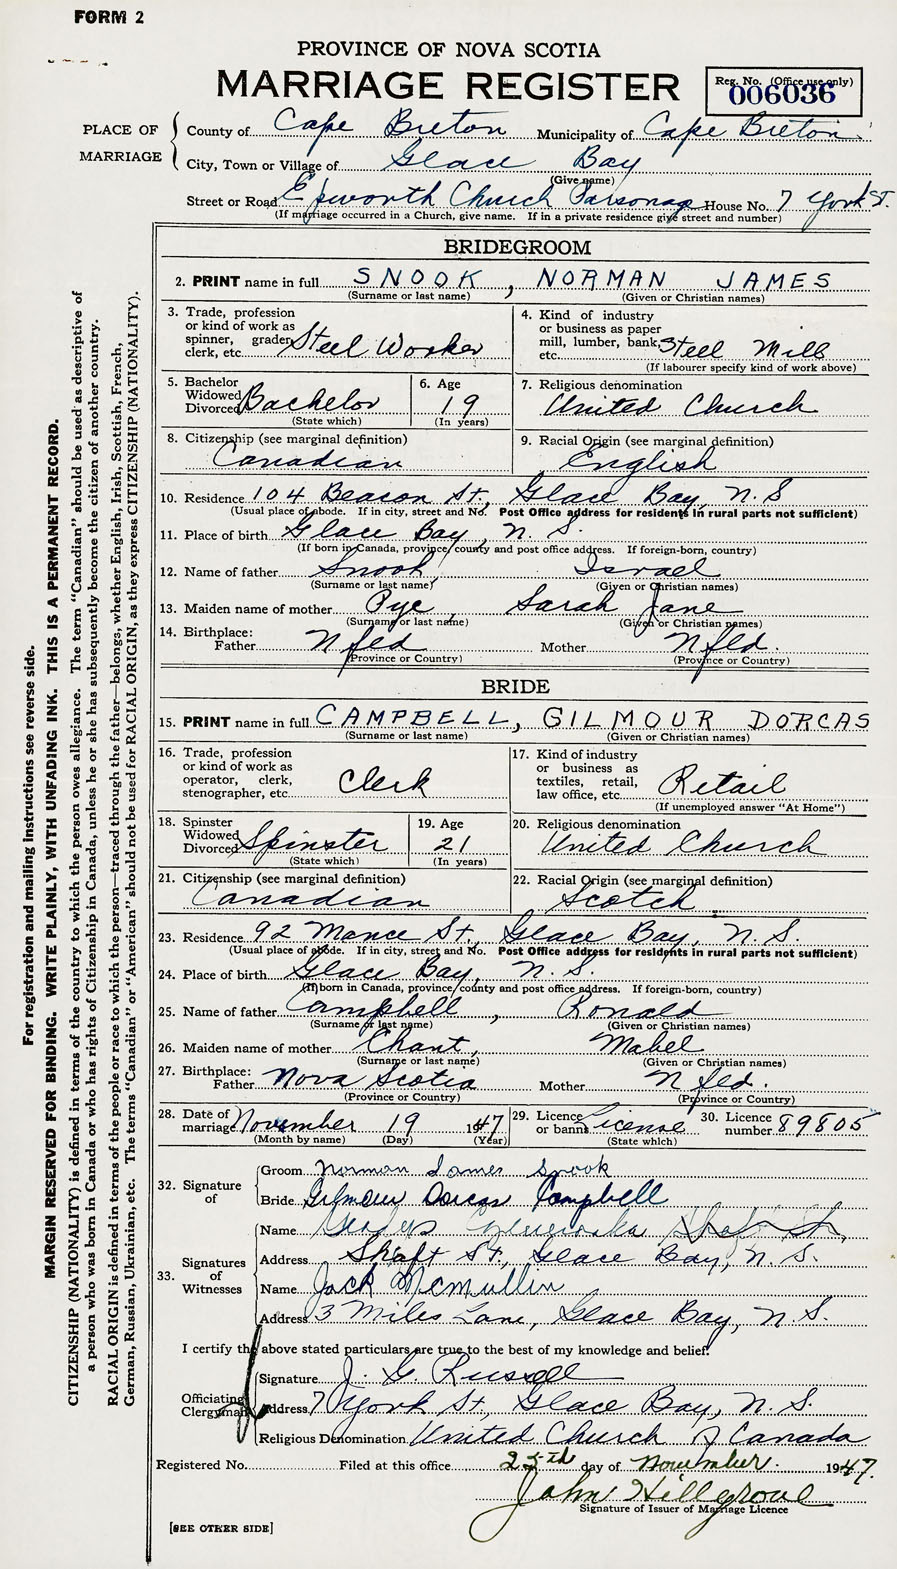 FORM 2
PROVINCE OF NOVA SCOTIA
MARRIAGE REGISTER
Reg. No. (Office use only)
006036
PLACE OF MARRIAGE
County of Cape Breton Municipality of Cape Breton
City, Town or Village of Glace Bay
(Give name)
Street or Road Epworth Church Parsonage House No. 7 York St.
(If marriage occurred in a Church, give name. If in a private residence give street and number)
BRIDEGROOM
2. PRINT name in full SNOOK, NORMAN JAMES
(Surname or last name) (Given or Christian names)
3. Trade, profession or kind of work as spinner, grader, clerk, etc. Steel Worker
4. Kind of industry or business as paper mill, lumber, bank, etc. Steel Mill
(If labourer specify kind of work above)
5. Bachelor Widowed Divorced Bachelor
(State which)
6. Age 19
(In years)
7. Religious denomination United Church
8. Citizenship (see marginal definition) Canadian
9. Racial Origin (see marginal definition) English
10. Residence 104 Beacon St., Glace Bay, N.S
(Usual place of abode. If in city, street and No. Post Office address for residents in rural parts not sufficient)
11. Place of birth Glace Bay, N. S.
(If born in Canada, province/county and post office address. If foreign-born, country)
12. Name of father Snook, Israel
(Surname or last name) (Given or Christian names)
13. Maiden name of mother Pye, Sarah Jane
(Surname or last name) (Given or Christian names)
14. Birthplace:
Father Nfld Mother Nfld.
(Province or Country) (Province or Country)
BRIDE
15. PRINT name in full CAMPBELL, GILMOUR DORCAS
(Surname or last name) (Given or Christian names)
16. Trade, profession or kind of work as operator, clerk, stenographer, etc. Clerk
17. Kind of industry or business as textiles, retail, law office, etc. Retail
(If unemployed answer "At Home")
18. Spinster Widowed Divorced Spinster
(State which)
19. Age 21
(In years)
20. Religious denomination United Church
21. Citizenship (see marginal definition) Canadian
22. Racial Origin (see marginal definition) Scotch
23. Residence 92 St., Glace Bay, N. S.
(Usual place of abode. If in city, street and No. Post Office address for residents in rural parts not sufficient)
24. Place of birth Glace Bay, N. S.
(If born in Canada, province/county and post office address. If foreign-born, country)
25. Name of father Campbell, Ronald
(Surname or last name) (Given or Christian names)
26. Maiden name of mother Chant, Mabel
(Surname or last name) (Given or Christian names)
27. Birthplace:
Father Nova Scotia Mother Nfld.
(Province or Country) (Province or Country)
28. Date of marriage November 19 1947
(Month by name) (Day) (Year)
29. Licence or banns License
(State which)
30. Licence number 89805
32. Signature of
Groom Norman James Snook
Bride Gilmour Dorcas Campbell
33. Signatures of Witnesses
Name Gladys
Address Shaft St., Glace Bay, N. S.
Name Jack McMullin
Address 3 Miles Lane, Glace Bay, N. S.
I certify the above stated particulars are true to the best of my knowledge and belief.
Officiating Clergyman
Signature J. G. Russell
Address 7 York St., Glace Bay, N. S.
Religious Denomination United Church of Canada
Registered No. Filed at this office 25th day of November. 1947.
John Hillgrove
Signature of Issuer of Marriage Licence
[SEE OTHER SIDE]
For registration and mailing instructions see reverse side.
MARGIN RESERVED FOR BINDING. WRITE PLAINLY, WITH UNFADING INK. THIS IS A PERMANENT RECORD.
CITIZENSHIP (NATIONALITY) is defined in terms of the country to which the person owes allegiance. The term "Canadian" should be used as descriptive of
a person who was born in Canada or who has rights of Citizenship in Canada, unless he or she has subsequently become the citizen of another country.
RACIAL ORIGIN is defined in terms of the people or race to which the person—traced through the father—belongs, whether English, Irish, Scottish, French,
German, Russian, Ukrainian, etc. The terms "Canadian" or "American" should not be used for RACIAL ORIGIN, as they express CITIZENSHIP (NATIONALITY).